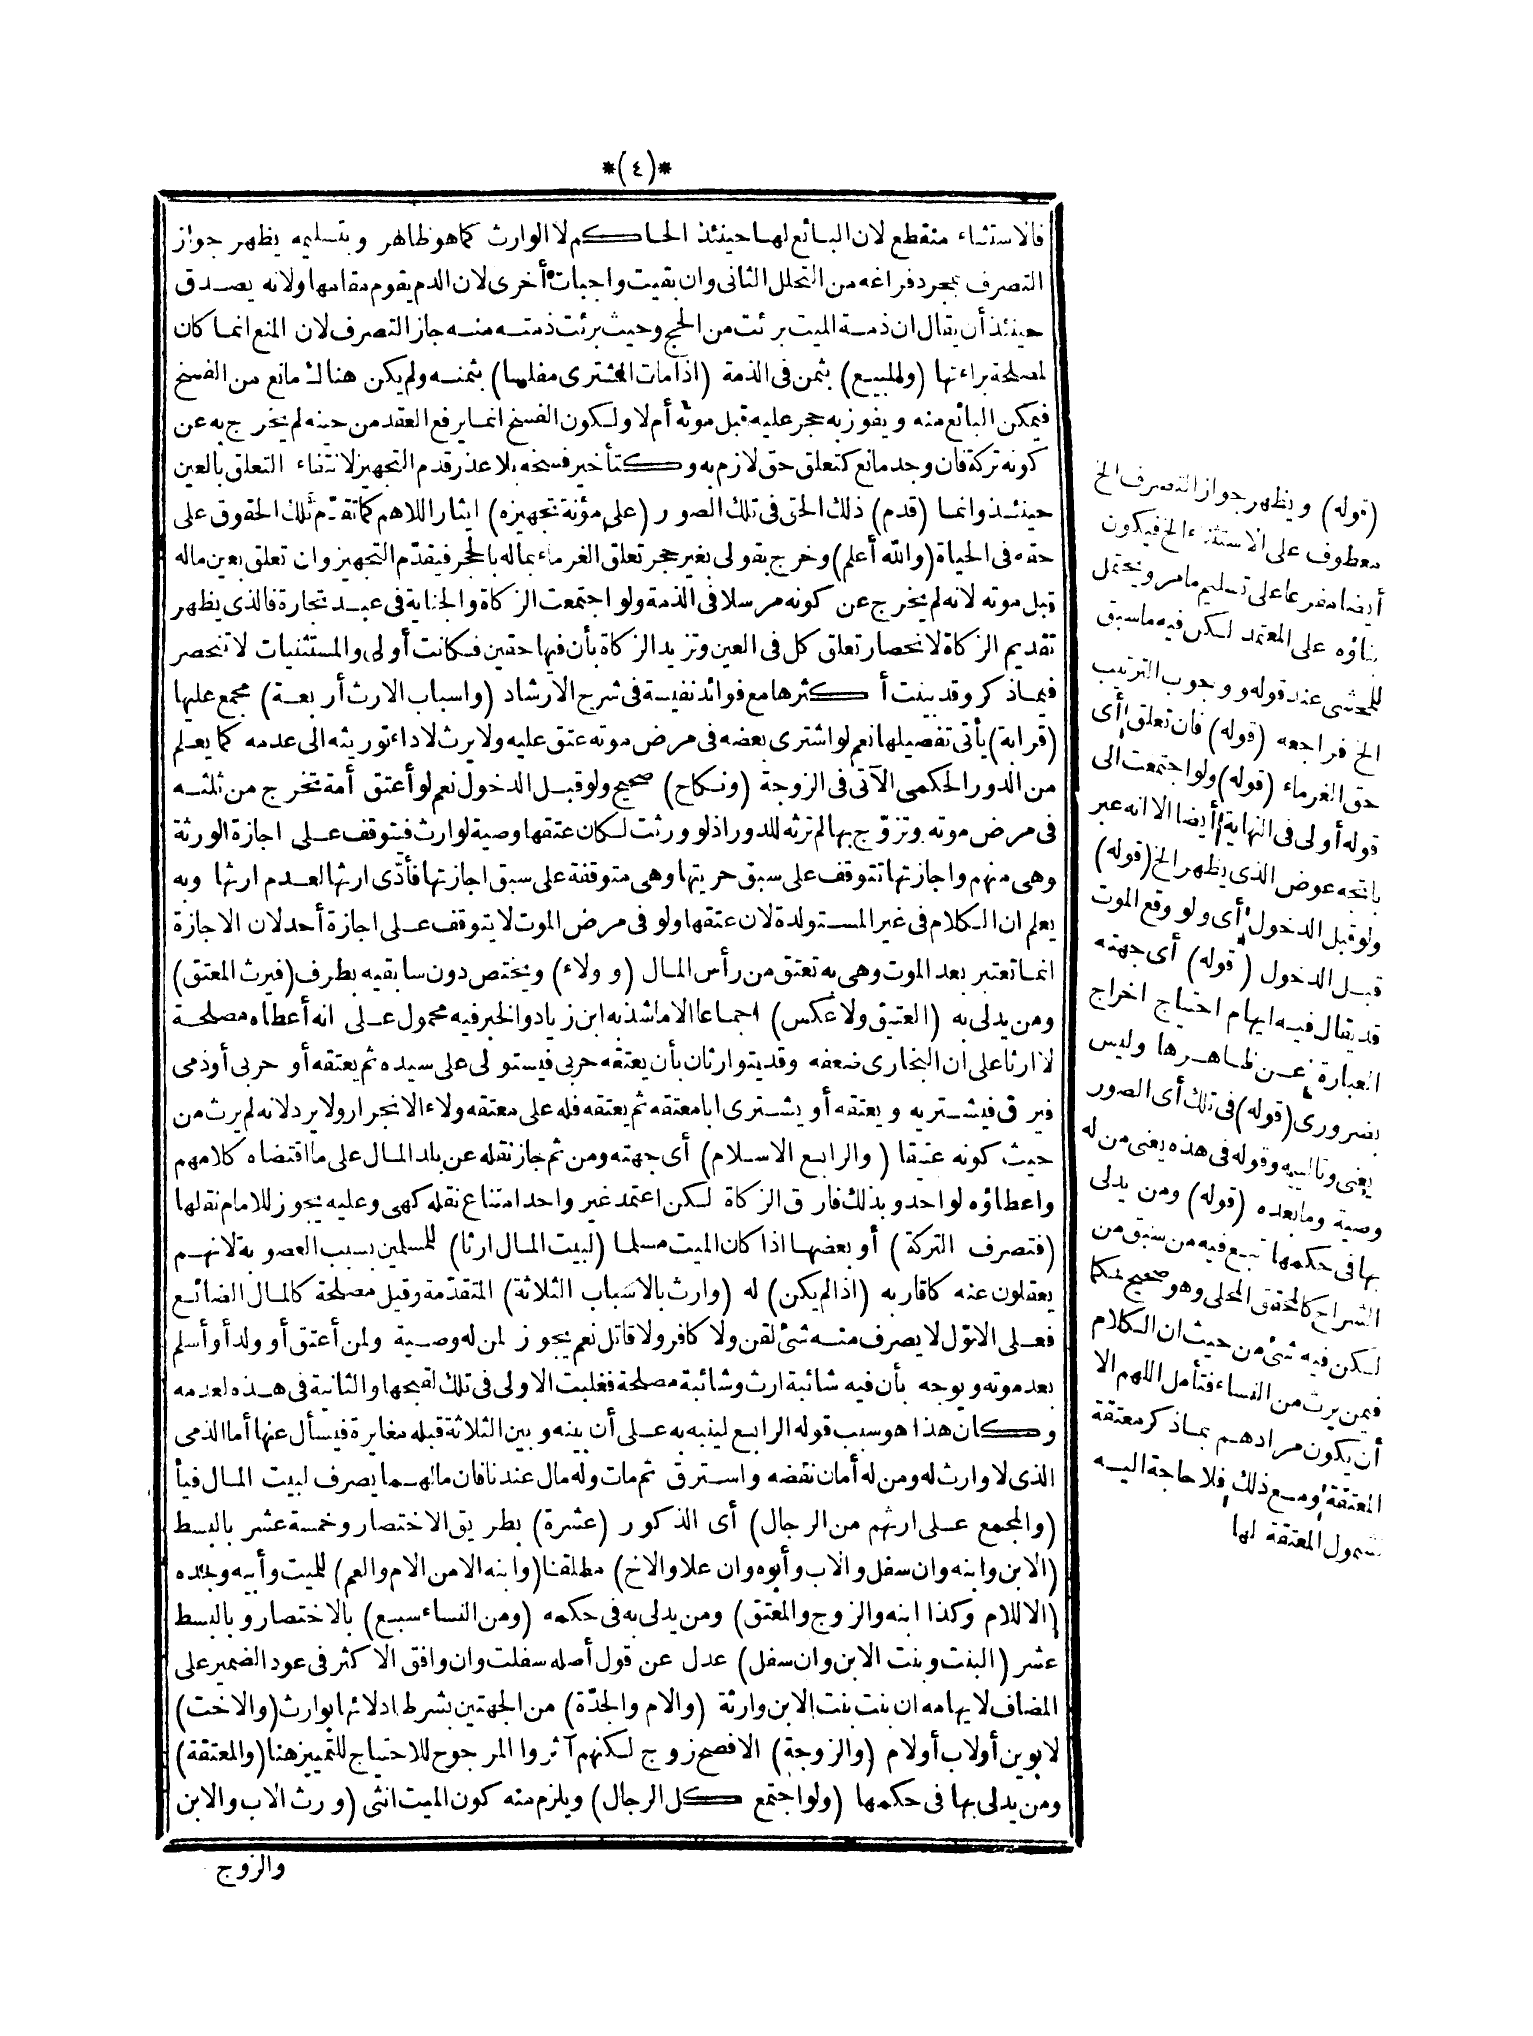 *(٤)*
فالاستثناء منقطع لان البائع لها حينئذ الحاكم لا الوارث كما هو ظاهر وبتسليمه يظهر جواز
التصرف بمجرد فراغه من التحلل الثانى وان بقيت واجبات أخرى لان الدم يقوم مقامها ولانه يصدق
حينئذ أن يقال ان ذمة الميت برئت من الحج وحيث برئت ذمته منه جاز التصرف لان المنع انما كان
لمصلحة براءتها (والمبيع) بثمن فى الذمة (اذا مات المشترى مفلسا) بثمنه ولم يكن هناك مانع من الفسخ
فيمكن البائع منه ويفوز به حجر عليه قبل موته أم لا ولكون الفسخ انما يرفع العقد من حينه لم يخرج به عن
كونه تركة فان وجد مانع كتعلق حق لازم به وكتأخير فسخه بلا عذر قدم التجهيز لانتفاء التعلق بالعين
حينئذ وانما (قدم) ذلك الحق فى تلك الصور (على مؤنة تجهيزه) ايثارا للاهم كما تقدّم تلك الحقوق على
حقه فى الحياة (والله أعلم) وخرج بقولى بغير حجر تعلق الغرماء بماله بالحجر فيقدّم التجهيز وان تعلق بعين ماله
قبل موته لانه لم يخرج عن كونه مرسلا فى الذمة ولو اجتمعت الزكاة والجناية فى عبد تجارة فالذى يظهر
تقديم الزكاة لانحصار تعلق كل فى العين وتزيد الزكاة بأن فيها حقين فكانت أولى والمستثنيات لا تنحصر
فيما ذكر وقد بينت أكثرها مع فوائد نفيسة فى شرح الارشاد (واسباب الارث أربعة) مجمع عليها
(قرابة) يأتى تفصيلها نعم لو اشترى بعضه فى مرض موته عتق عليه ولا يرث لاداء توريثه الى عدمه كما يعلم
من الدور الحكمى الآتى فى الزوجة (ونكاح) صحيح ولو قبل الدخول نعم لو أعتق أمة تخرج من ثلثه
فى مرض موته وتزوّج بها لم ترثه للدور اذ لو ورثت لكان عتقها وصية لوارث فيتوقف على اجازة الورثة
وهى منهم واجازتها تتوقف على سبق حريتها وهى متوقفة على سبق اجازتها فأدّى ارثها لعدم ارثها وبه
يعلم ان الكلام فى غير المستولدة لان عتقها ولو فى مرض الموت لا يتوقف على اجازة أحد لان الاجازة
انما تعتبر بعد الموت وهى به تعتق من رأس المال (وولاء) ويختص دون سابقيه بطرف (فيرث المعتق)
ومن يدلى به (العتيق ولا عكس) اجماعا الا ما شذ به ابن زياد والخبر فيه محمول على انه أعطاه مصلحة
لا ارثا على ان البخارى ضعفه وقد يتوارثان بأن يعتقه حربى فيستولى على سيده ثم يعتقه أو حربى أو ذمى
فيرق فيشتريه ويعتقه أو يشترى ابا معتقه ثم يعتقه فله على معتقه ولاء الانجرار ولا يرد لانه لم يرث من
حيث كونه عتيقا (والرابع الاسلام) أى جهته ومن ثم جاز نقله عن بلد المال على ما اقتضاه كلامهم
واعطاؤه لواحد وبذلك فارق الزكاة لكن اعتمد غير واحد امتناع نقله كهى وعليه يجوز للامام نقلها
(فتصرف التركة) أو بعضها اذا كان الميت مسلما (لبيت المال ارثا) للمسلمين بسبب العصوبة لانهم
يعقلون عنه كاقاربه (اذا لم يكن) له (وارث بالاسباب الثلاثة) المتقدّمة وقيل مصلحة كالمال الضائع
فعلى الاوّل لا يصرف منه شئ لقن ولا كافر ولا قاتل نعم يجوز لمن له وصية ولمن أعتق أو ولد أو أسلم
بعد موته ويوجه بأن فيه شائبة ارث وشائبة مصلحة فغلبت الاولى فى تلك لقبحها والثانية فى هذه لعدمه
وكان هذا هو سبب قوله الرابع لينبه به على أن بينه وبين الثلاثة قبله مغايرة فيسأل عنها أما الذمى
الذى لا وارث له ومن له أمان نقضه واسترق ثم مات وله مال عندنا فان مالهما يصرف لبيت المال فيأ
(والمجمع على ارثهم من الرجال) أى الذكور (عشرة) بطريق الاختصار وخمسة عشر بالبسط
(الابن وابنه وان سفل والاب وأبوه وان علا والاخ) مطلقا (وابنه الا من الام والعم) للميت وأبيه وجده
(الا للام وكذا ابنه والزوج والمعتق) ومن يدلى به فى حكمه (ومن النساء سبع) بالاختصار وبالبسط
عشر (البنت وبنت الابن وان سفل) عدل عن قول أصله سفلت وان وافق الاكثر فى عود الضمير على
المضاف لايهامه ان بنت بنت الابن وارثة (والام والجدّة) من الجهتين بشرط ادلائها بوارث (والاخت)
لابوين أولاب أولام (والزوجة) الافصح زوج لكنهم آثروا المرجوح للاحتياج للتمييز هنا (والمعتقة)
ومن يدلى بها فى حكمها (ولو اجتمع كل الرجال) ويلزم منه كون الميت انثى (ورث الاب والابن
والزوج
(قوله) ويظهر جواز التصرف الخ
معطوف على الاستثناء الخ فيكون
أيضا مفرعا على تسليم ما مر ويحتمل
بناؤه على المعتمد لكن فيه ما سبق
للمحشى عند قوله ووجوب الترتيب
الخ فراجعه (قوله) فان تعلق أى
حق الغرماء (قوله) ولو اجتمعت الى
قوله أولى فى النهاية أيضا الا انه عبر
باتجه عوض الذى يظهر الخ (قوله)
ولو قبل الدخول أى ولو وقع الموت
قبل الدخول (قوله) أى جهته
قد يقال فيه ايهام احتياج اخراج
العبارة عن ظاهرها وليس
بضرورى (قوله) فى تلك أى الصور
يعنى وتالييه وقوله فى هذه يعنى من له
وصية وما بعده (قوله) ومن يدلى
بها فى حكمها تبع فيه من سبق من
الشراح كالمحقق المحلى وهو صحيح حكما
لكن فيه شئ من حيث ان الكلام
فيمن يرث من النساء فتأمل اللهم الا
أن يكون مرادهم بما ذكر معتقة
المعتقة ومع ذلك فلا حاجة اليه
لشمول المعتقة لها